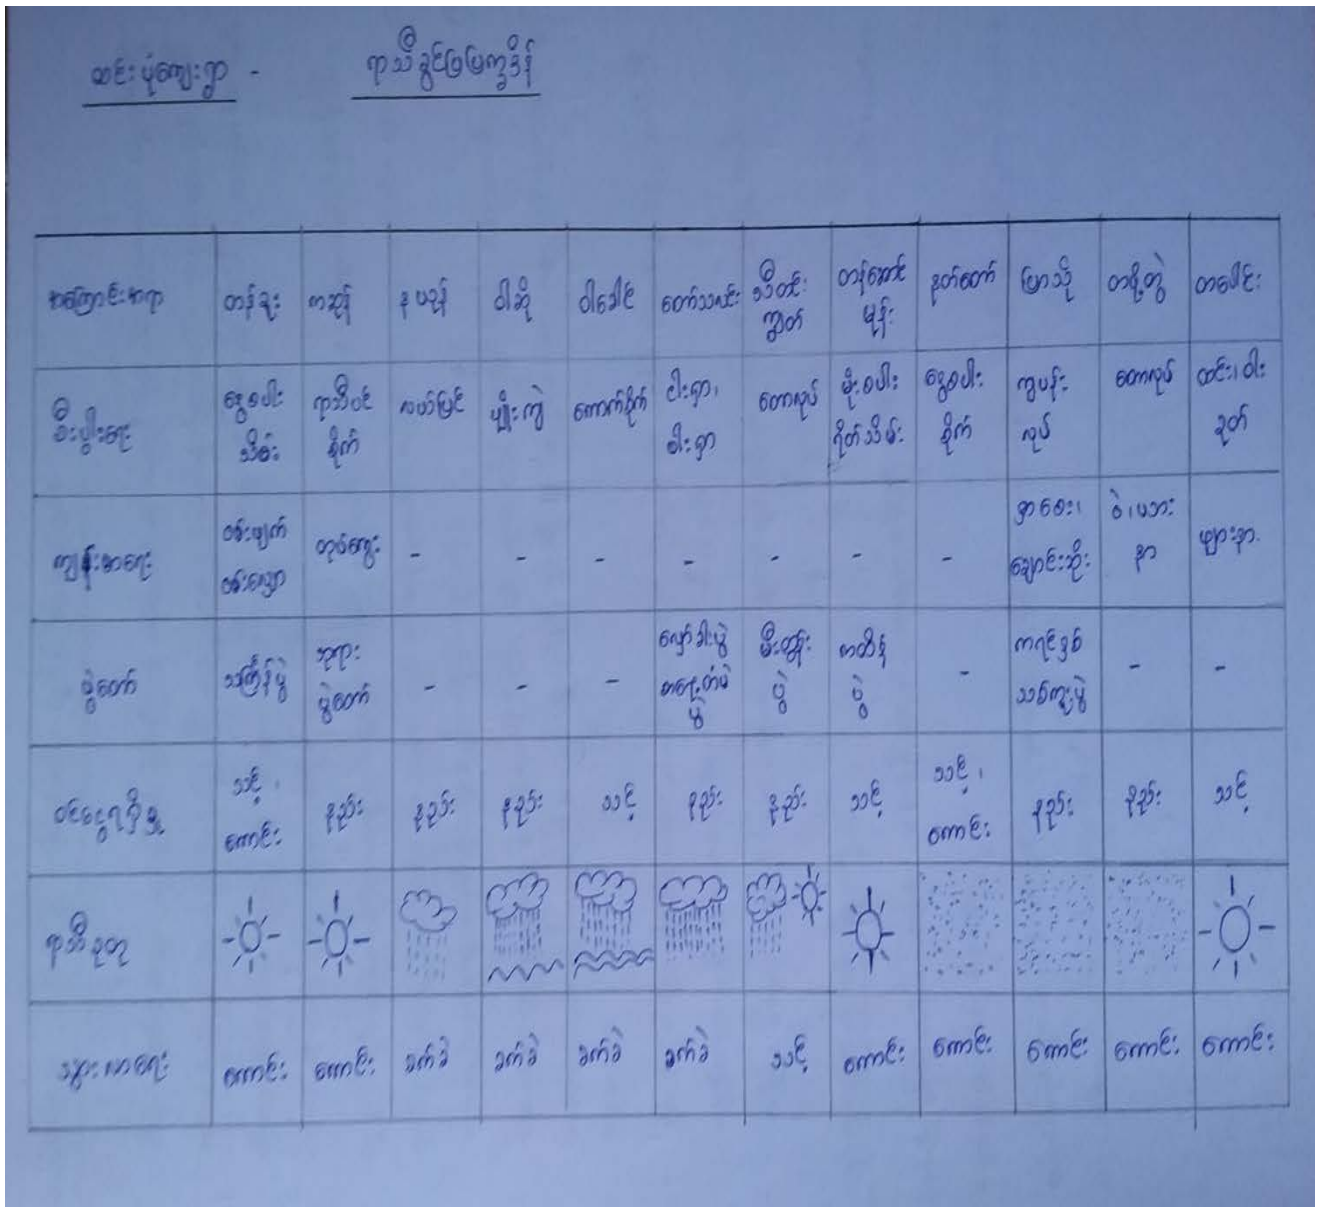 ဆင်းပုံကျေးရွာ - ရာသီခွင်ပြပြက္ခဒိန်
အကြောင်းအရာ တန်ခူး ကဆုန် နယုန် ဝါဆို ဝါခေါင် တော်သလင်း သီတင်း ကျွတ် တန်ဆောင် မုန်း နတ်တော် ပြာသို တပို့တွဲ တပေါင်း
စီးပွါးရေး နွေစပါး သိမ်း ရာသီပင် စိုက် လယ်ပြင် ပျိုးကျဲ ကောက်စိုက် ငါးရှာ၊ ဖါးရှာ တောလုပ် မိုးစပါး ရိတ်သိမ်း နွေစပါး စိုက် ကွပန်း လုပ် တောလုပ် ထင်း၊ဝါး ခုတ်
ကျန်းမာရေး ဝမ်းပျက် ဝမ်းလျှော တုပ်ကွေး - - - - - - - နှာစေး၊ ချောင်းဆိုး ဝဲ၊ပဘား နာ ဖျားနာ
ပွဲတော် သင်္ကြန်ပွဲ ဘုရား ပွဲတော် - - - လှော်ခါးပွဲ စာရေးတံမဲ ပွဲ မီးထွန်း ပွဲ ကထိန် ပွဲ - ကရင်နှစ် သစ်ကူးပွဲ - -
ဝင်ငွေရရှိမှု သင့်၊ ကောင်း နည်း နည်း နည်း သင့် နည်း နည်း သင့် သင့်၊ ကောင်း နည်း နည်း သင့်
ရာသီဥတု
သွားလာရေး ကောင်း ကောင်း ခက်ခဲ ခက်ခဲ ခက်ခဲ ခက်ခဲ သင့် ကောင်း ကောင်း ကောင်း ကောင်း ကောင်း